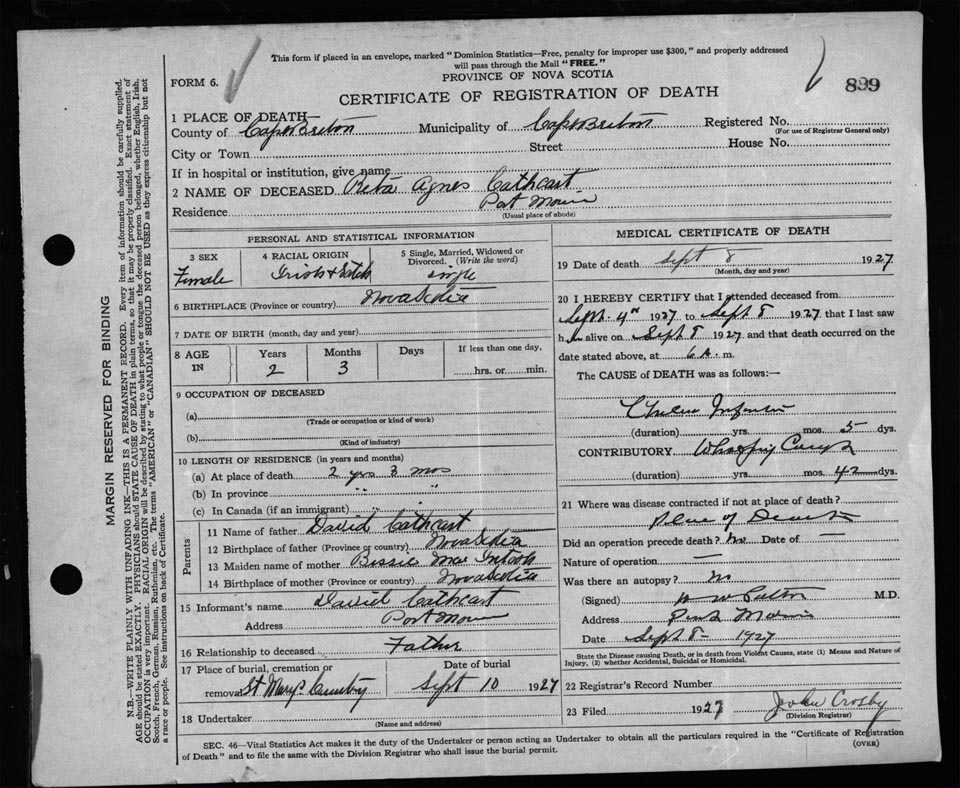 This form if placed in an envelope, marked "Dominion Statistics—Free, penalty for improper use $300," and properly addressed
will pass through the Mail "FREE."
FORM 6.
PROVINCE OF NOVA SCOTIA
899
CERTIFICATE OF REGISTRATION OF DEATH
1 PLACE OF DEATH—
County of Cape Breton Municipality of Cape Breton Registered No.
(For use of Registrar General only)
City or Town Street House No.
If in hospital or institution, give name
2 NAME OF DECEASED Rita Agnes Cathcart
Residence Port Morien
(Usual place of abode)
PERSONAL AND STATISTICAL INFORMATION
3 SEX
Female
4 RACIAL ORIGIN
Irish & Scotch
5 Single, Married, Widowed or
Divorced. (Write the word)
single
6 BIRTHPLACE (Province or country) Nova Scotia
7 DATE OF BIRTH (month, day and year)
8 AGE
IN
Years
2
Months
3
Days
If less than one day,
hrs. or min.
9 OCCUPATION OF DECEASED
(a)
(Trade or occupation or kind of work)
(b)
(Kind of industry)
10 LENGTH OF RESIDENCE (in years and months)
(a) At place of death 2 yrs 3 mos
(b) In province " "
(c) In Canada (if an immigrant) "
Parents
11 Name of father David Cathcart
12 Birthplace of father (Province or country) Nova Scotia
13 Maiden name of mother Bessie MacIntosh
14 Birthplace of mother (Province or country) Nova Scotia
15 Informant's name David Cathcart
Address Port Morien
16 Relationship to deceased Father
17 Place of burial, cremation or
removal St Mary's Cemetery
Date of burial
Sept 10 1927
18 Undertaker
(Name and address)
MEDICAL CERTIFICATE OF DEATH
19 Date of death Sept 8 1927
(Month, day and year)
20 I HEREBY CERTIFY that I attended deceased from
Sept. 4th 1927 to Sept 8 1927 that I last saw
h alive on Sept 8 1927 and that death occurred on
date stated above, at 6 A. m.
The CAUSE of DEATH was as follows:—
Cholera Infantum
(duration) yrs. mos. 5 dys.
CONTRIBUTORY Whooping Cough
(duration) yrs. mos. 42 dys.
21 Where was disease contracted if not at place of death?
Place of Death
Did an operation precede death? no Date of —
Nature of operation —
Was there an autopsy? no
(Signed) M.D.
Address Port Morien
Date Sept 8— 1927
State the Disease causing Death, or in death from Violent Causes, state (1) Means and Nature of
Injury, (2) whether Accidental, Suicidal or Homicidal.
22 Registrar's Record Number
23 Filed 1927 John Crosby
(Division Registrar)
SEC. 46—Vital Statistics Act makes it the duty of the Undertaker or person acting as Undertaker to obtain all the particulars required in the "Certificate of Registration
of Death" and to file the same with the Division Registrar who shall issue the burial permit.
(OVER)
MARGIN RESERVED FOR BINDING
N.B.—WRITE PLAINLY WITH UNFADING INK—THIS IS A PERMANENT RECORD. Every item of information should be carefully supplied.
AGE should be stated EXACTLY. PHYSICIANS should STATE CAUSE OF DEATH in plain terms, so that it may be properly classified. Exact statement of
OCCUPATION is very important. RACIAL ORIGIN will be described by stating to what people or tongue the deceased person belonged, whether English, Irish,
Scotch, French, German, Russian, Ruthenian, etc. The terms "AMERICAN" or "CANADIAN" SHOULD NOT BE USED as they express citizenship but not
a race or people. See instructions on back of Certificate.